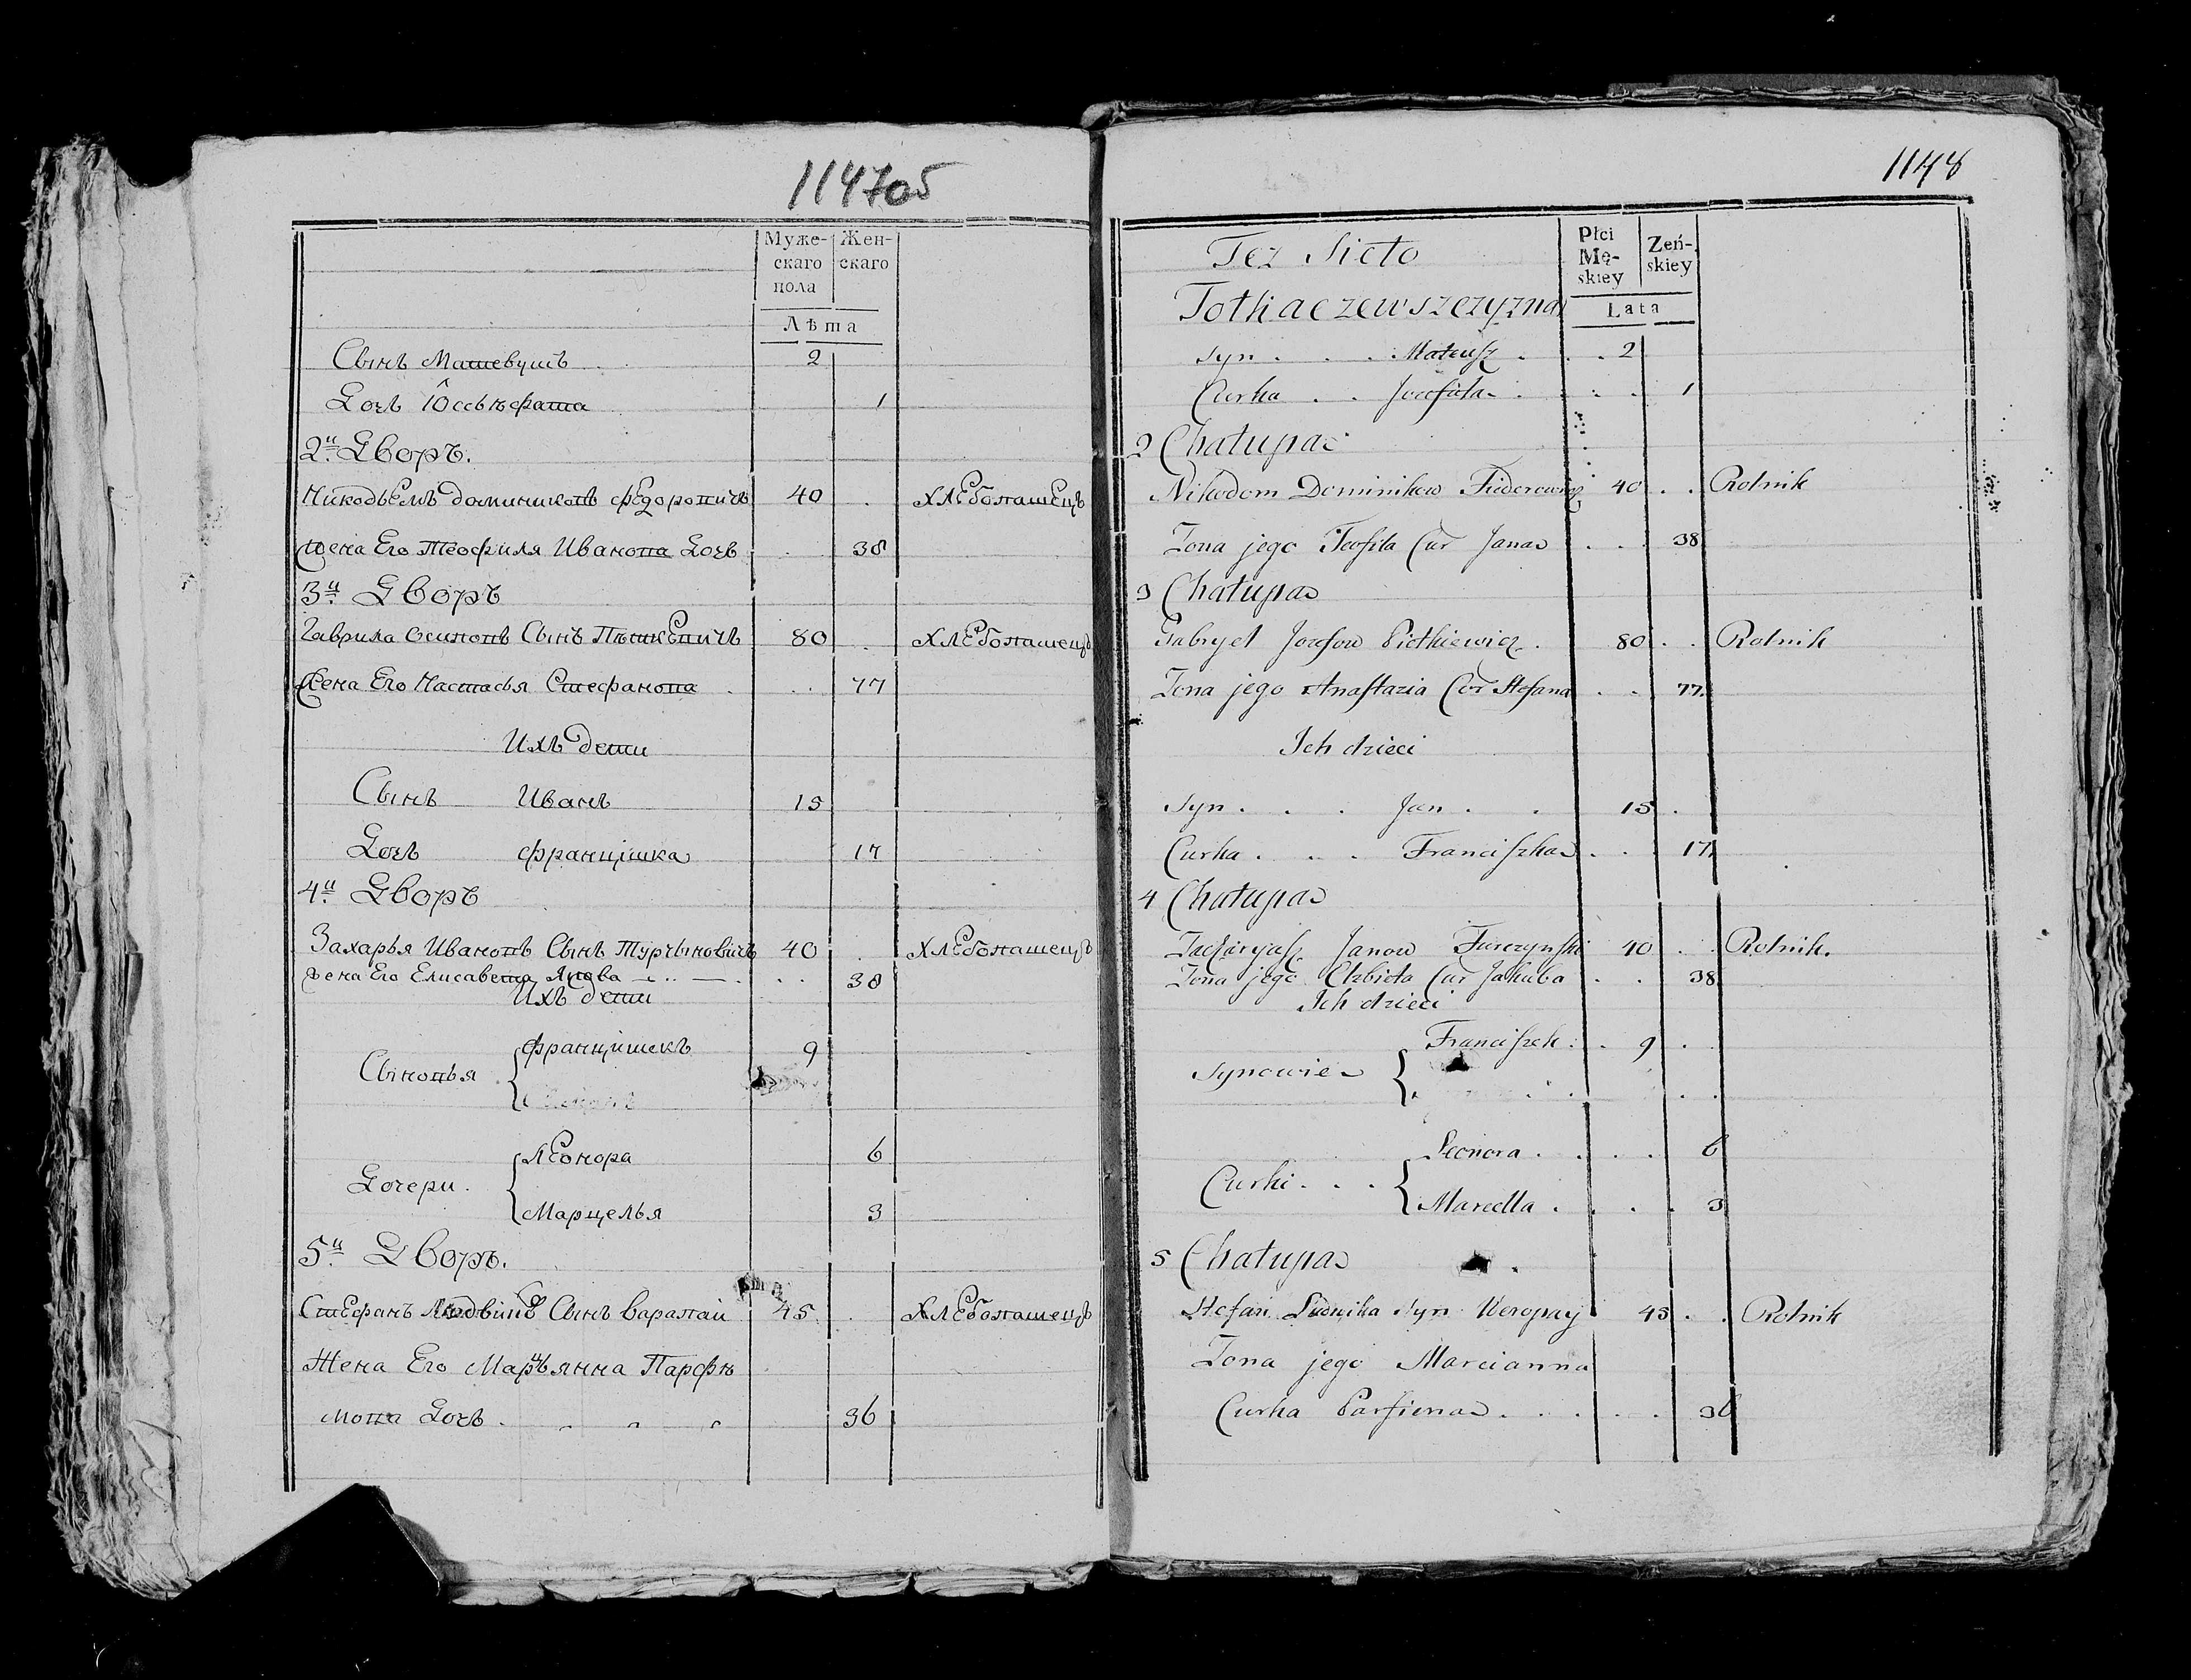 1147об
Муже-
скаго
пола
Жен-
скаго
Лѣта
Сынъ Матевушъ 2
Дочь Юсѣфата 1
2й Дворъ.
Никодьемъ доминиковъ фѣдоровичъ 40 . хлебопашецъ
жена Его Теофиля Иванова Дочь . . 38
3й Дворъ
Гаврила Осиповъ Сынъ Пѣткевичъ 80 . хлебопашецъ
Жена Его Настасья Стефанова . . . 77
Ихъ дети
Сынъ Иванъ 15
Дочь францишка 17
4й Дворъ
Захарья Ивановъ Сынъ Турчыновичъ 40 . хлебопашецъ
жена Его Елисавета . . 38
Ихъ дети
Сыновья { францишекъ 9
Дочери. { Леонора 6
Марцелья 3
5й Дворъ.
Стефанъ Сынъ Варапай 45 . хлебопашецъ
Жена Его Марцьянна Парфѣ
мова Дочь . 36
1148
Też Sioło
Tołkaczewszczyzna
Płci
Mę-
skiey
Zeń-
skiey
Lata
Syn . . . Mateusz . . . 2
Curka . . Jozefata . . . . 1
2 Chałupa
Nikodem Dominikow Fiedorowicz 40 . . Rolnik
Żona jego Teofila Cur Jana . . 38
3 Chałupa
Gabryel Jozefow Pietkiewicz . 80 . . Rolnik
Żona jego Anastazia Cór Stefana . . 77
Ich dzieci
Syn . . . Jan . . 15 .
Curka . . . Franciszka . . 17
4 Chałupa
Zacharyasz Janow Turczynski 40 . . Rolnik.
Żona jego Elżbieta Cur Jakuba . . 38
Ich dzieci
Synowie { Franciszek . . 9 .
Curki . . . { Leonora . . . . 6
Marcella . . . . 3
5 Chałupa
Stefan Ludwika Syn Woropay 45 . . Rolnik
Żona jego Marcianna
Curka Parfiena . . . . . 36